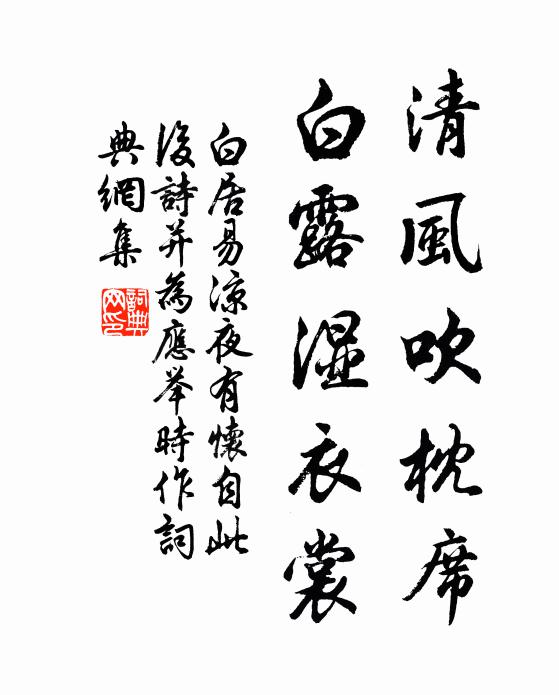 清風吹枕席
白露湿衣裳
白居易涼夜有懷自此
後詩并為應举時作詞
典網集
詞典
网印